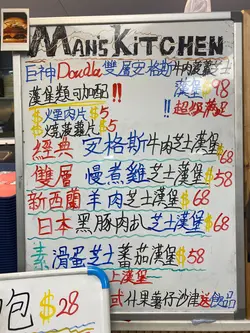 MANS KITCHEN
巨神 Double 雙層安格斯牛肉菠蘿芝士漢堡 $98
漢堡類可加配!! 超級滿足!!
煙肉片 $5
菠蘿片 $5
經典 安格斯牛肉芝士漢堡 $68
雙層 慢煮雞芝士漢堡 $58
新西蘭 羊肉芝士漢堡 $68
日本 黑豚肉扒芝士漢堡 $68
素 滑蛋芝士蕃茄漢堡 $58
上漢堡
式什果薯仔沙津 送飲品
包 $28